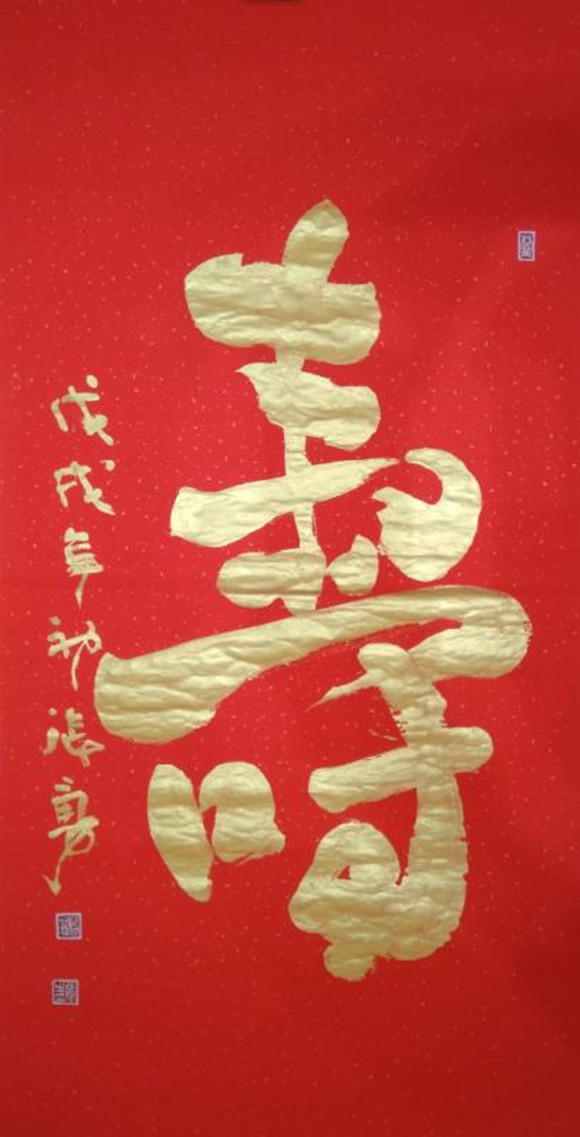 壽
戊戌年初張勇